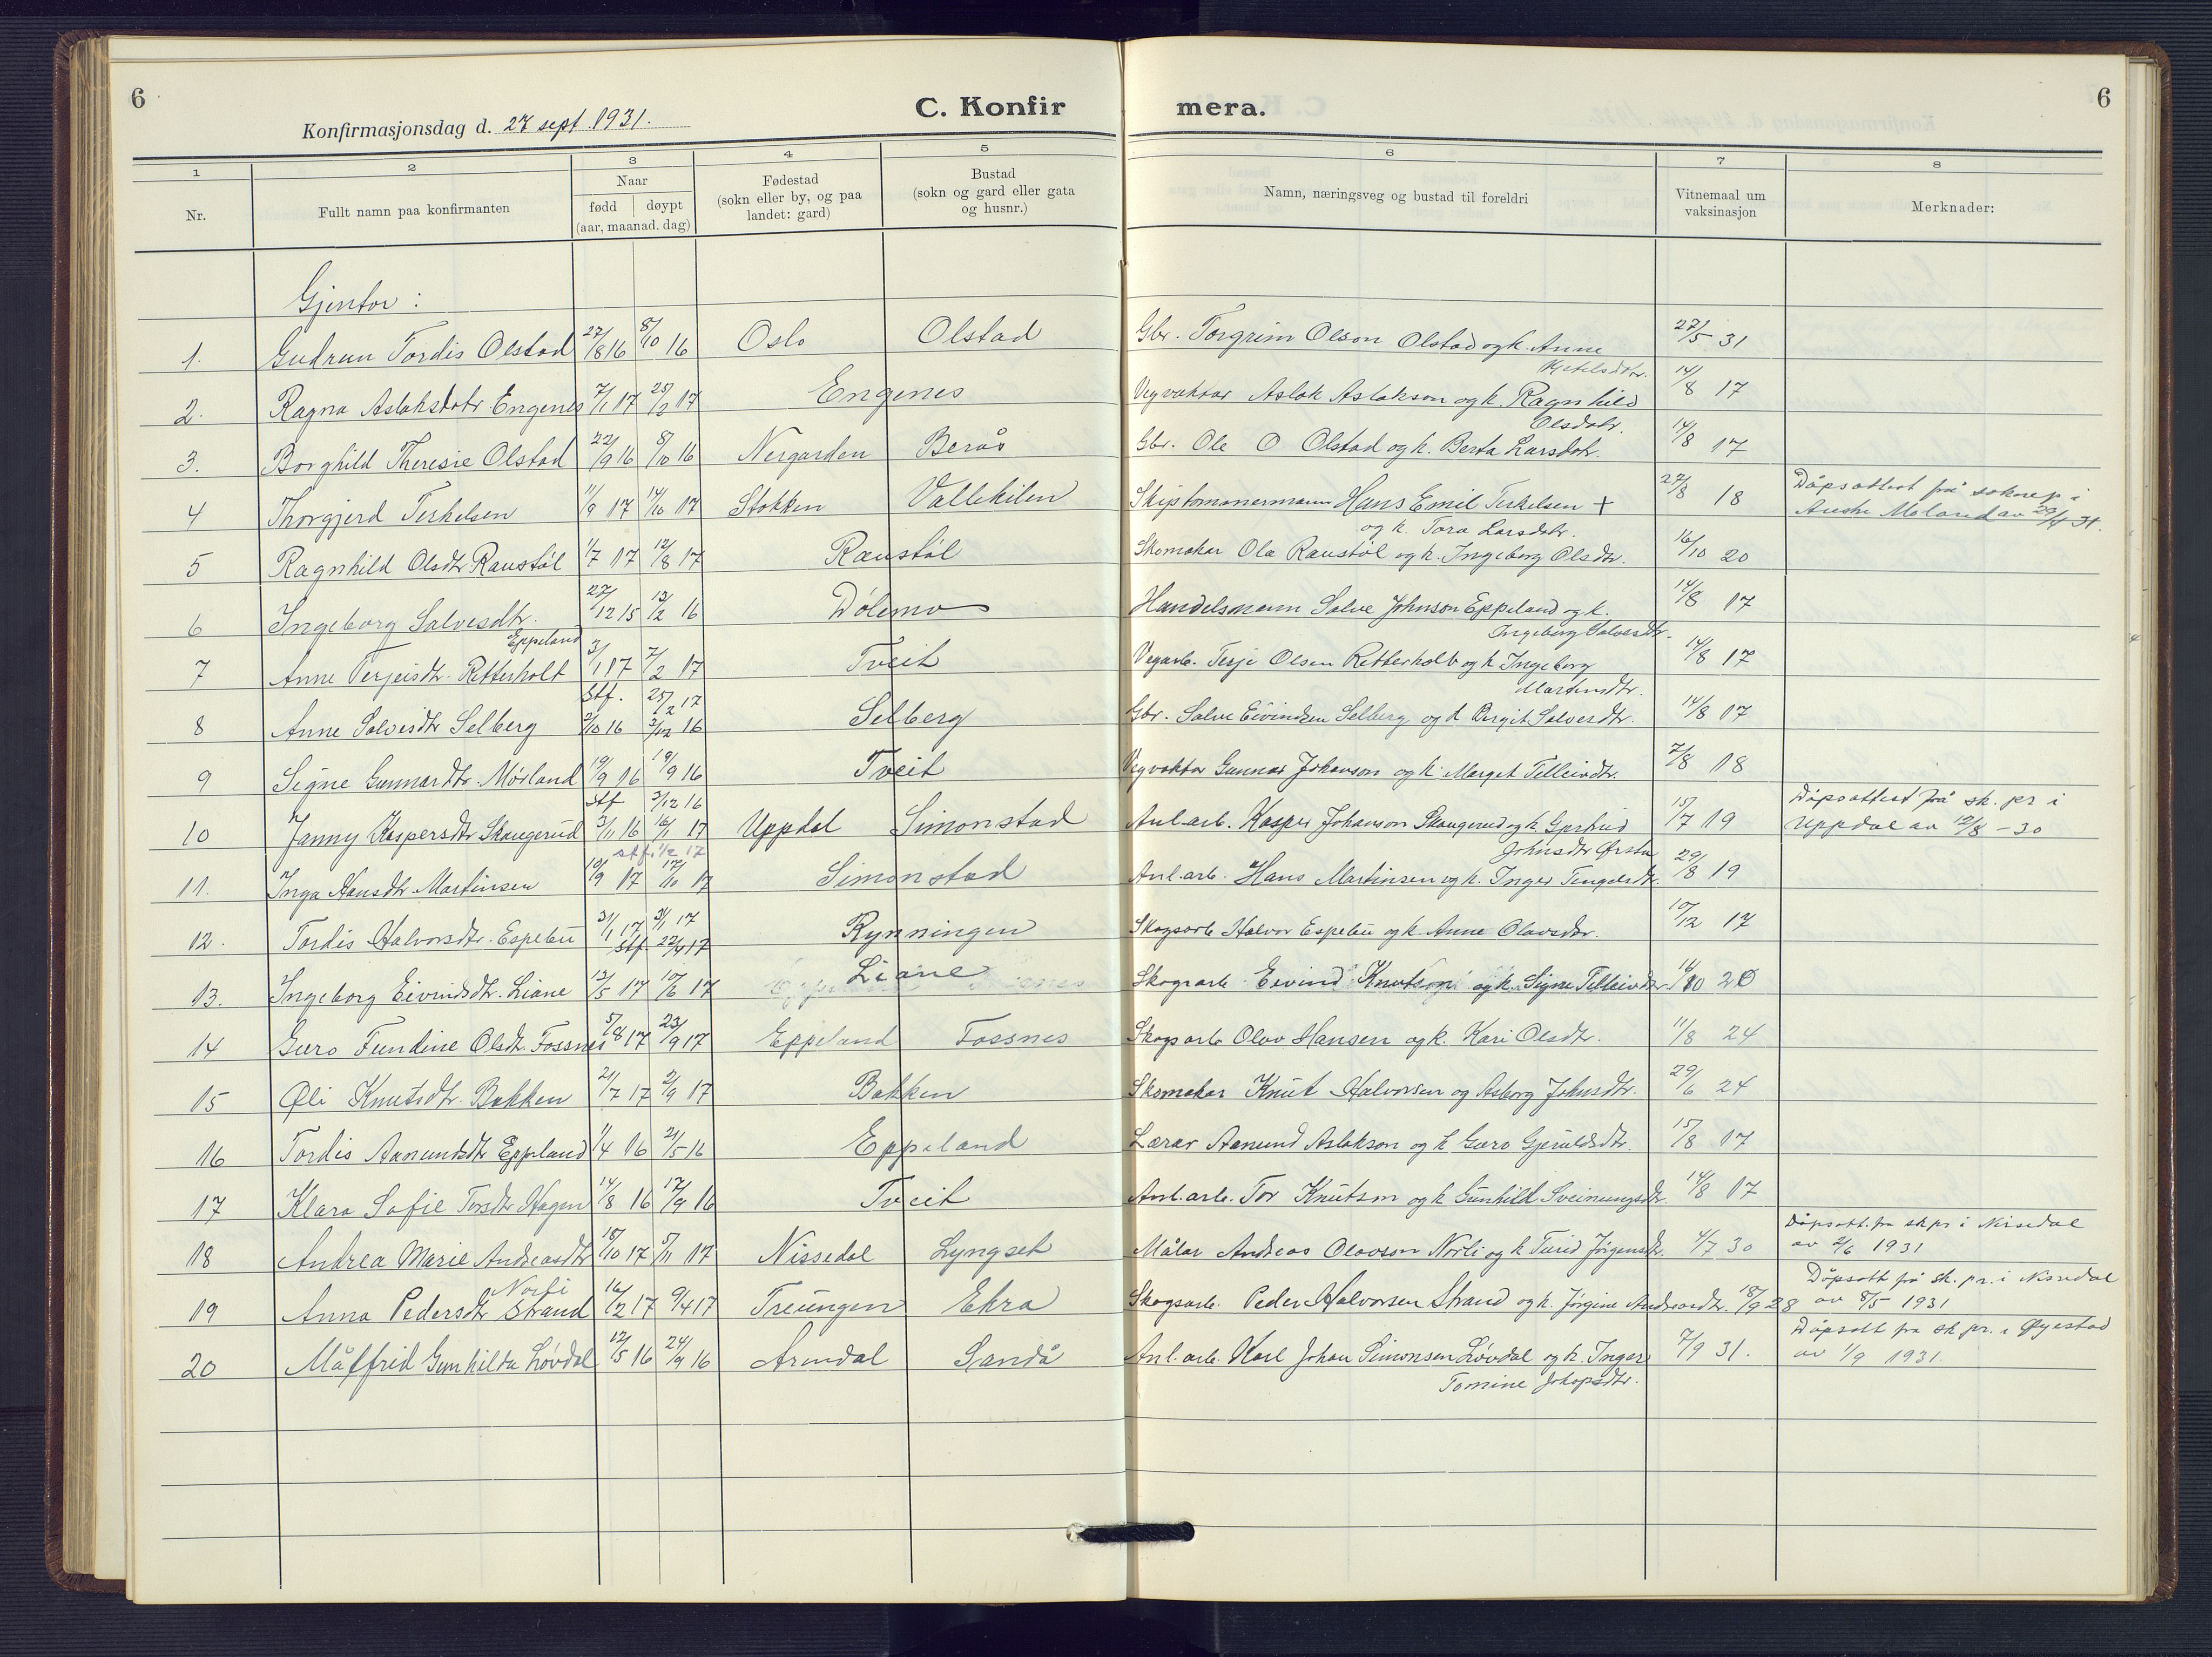 6
C. Konfirmera.
6
Konfirmasjonsdag d. 27 sept. 1931.
1 2 3 4 5 6 7 8
Nr.
Fullt namn paa konfirmanten
Naar
fødd døypt
(aar, maanad. dag)
Fødestad
(sokn eller by, og paa
landet: gard)
Bustad
(sokn og gard eller gata
og husnr.)
Namn, næringsveg og bustad til foreldri
Vitnemaal um
vaksinasjon
Merknader:
Gjentor:
1. Gudrun Tordis Olstad 27/8 16 8/10 16 Oslo Olstad Gbr. Torgrim Olson Olstad og k. Anne 27/5 31
Kjetilsdtr.
2. Ragna Aslaksdotr Engenes 7/1 17 25/2 17 Engenes Vegvaktar Aslak Aslakson og k. Ragnhild 14/8 17
Olsdotr.
3. Borghild Theresie Olstad 22/9 16 8/10 16 Nergarden Berås Gbr. Ole O Olstad og k. Berta Larsdotr. 14/8 17
4 Thorgjerd Terkelsen 11/9 17 14/10 17 Stokken Vallekilen Skipstømmermann Hans Emil Terkelsen + 27/8 18 Dåpsattest frå sokнepr i
og k. Tora Larsdotr. Austre Moland av 29/4 31.
5 Ragnhild Olsdtr Raustøl 1/7 17 12/8 17 Raustøl Skomakar Ola Raustøl og k. Ingeborg Olsdtr. 16/10 20
6 Ingeborg Salvesdtr. 27/12 15 13/2 16 Dølemo Handelsmann Salve Johnson Eppeland og k. 14/8 17
Eppeland Ingeborg Salvesdtr.
7 Anne Terjeisdtr. Retterholt 3/1 17 7/2 17 Tveit Vegarb. Terje Olsen Retterholt og k Ingeborg 14/8 17
Stf. 25/2 17 Martinsdtr.
8 Anne Salvesdtr Selberg 2/10 16 3/12 16 Selberg Gbr. Salve Eivindsen Selberg og k Birgit Salvesdtr. 14/8 17
9 Signe Gunnardtr. Mørland 19/9 16 19/9 16 Tveit Vegvaktar Gunnar Johanson og k. Marget Telleivdtr. 7/8 18
Stf 3/12 16
10 Janny Kaspersdtr Skaugerud 3/11 16 16/1 17 Uppdal Simonstad Anl.arb. Kasper Johanson Skaugerud og k. Gjertrud 15/7 19 Dåpsattest frå sk. pr i
stf. 1/2 17 Johnsdtr Ørstu Uppdal av 12/8 - 30
11. Inga Hansdtr Martinsen 19/9 17 17/10 17 Simonstad Anl.arb. Hans Martinsen og k. Inger Tengelsdtr. 29/8 19
12. Tordis Halvorsdtr. Espebu 31/1 17 31/1 17 Rynningen Skogsarb Halvor Espebu og k. Anne Olavsdtr. 10/12 17
Stf. 22/4 17
13. Ingeborg Eivindsdtr. Liane 13/5 17 10/6 17 Liane Skogsarb. Eivind Knutson og k. Signe Telleivdtr. 16/10 20
14 Guro Fundine Olsdtr. Fossnes 5/8 17 23/9 17 Eppeland Fossnes Skogsarb Olav Hansen og k. Kari Olsdtr. 11/8 24
15 Øli Knutsdtr. Bakken 21/7 17 2/9 17 Bakken Skomakar Knut Halvorsen og Asborg Johnsdtr. 29/6 24
16 Tordis Aanundsdtr Eppeland 1/4 16 21/5 16 Eppeland Lærar Aanund Aslakson og k Guro Gjeruldsdtr. 15/8 17
17 Klara Sofie Torsdtr Hagen 14/8 16 17/9 16 Tveit Anl.arb. Tor Knutson og k Gunhild Sveinungsdtr. 14/8 17
18 Andrea Marie Andreasdtr 18/10 17 5/11 17 Nissedal Lyngset Målar Andreas Olavson Norli og k Turid Jørgensdtr. 4/7 30 Dåpsatt. fra sk pr i Nisedal
Norli av 2/6 1931
19 Anna Pedersdtr Strand 16/2 17 9/4 17 Treungen Ekra Skogsarb. Peder Halvorsen Strand og k. Jørgine Andreasdtr. 18/9 28 Dåpsatt frå sk. pr. i Nisedal
av 8/5 1931
20 Målfrid Gunhilda Løvdal 12/5 16 24/9 16 Arendal Sandå Anl.arb. Karl Johan Simonsen Løvdal og k. Inger 7/9 31. Dåpsatt fra sk pr. i Øyestad
Tomine Jakopsdtr. av 1/9 1931.